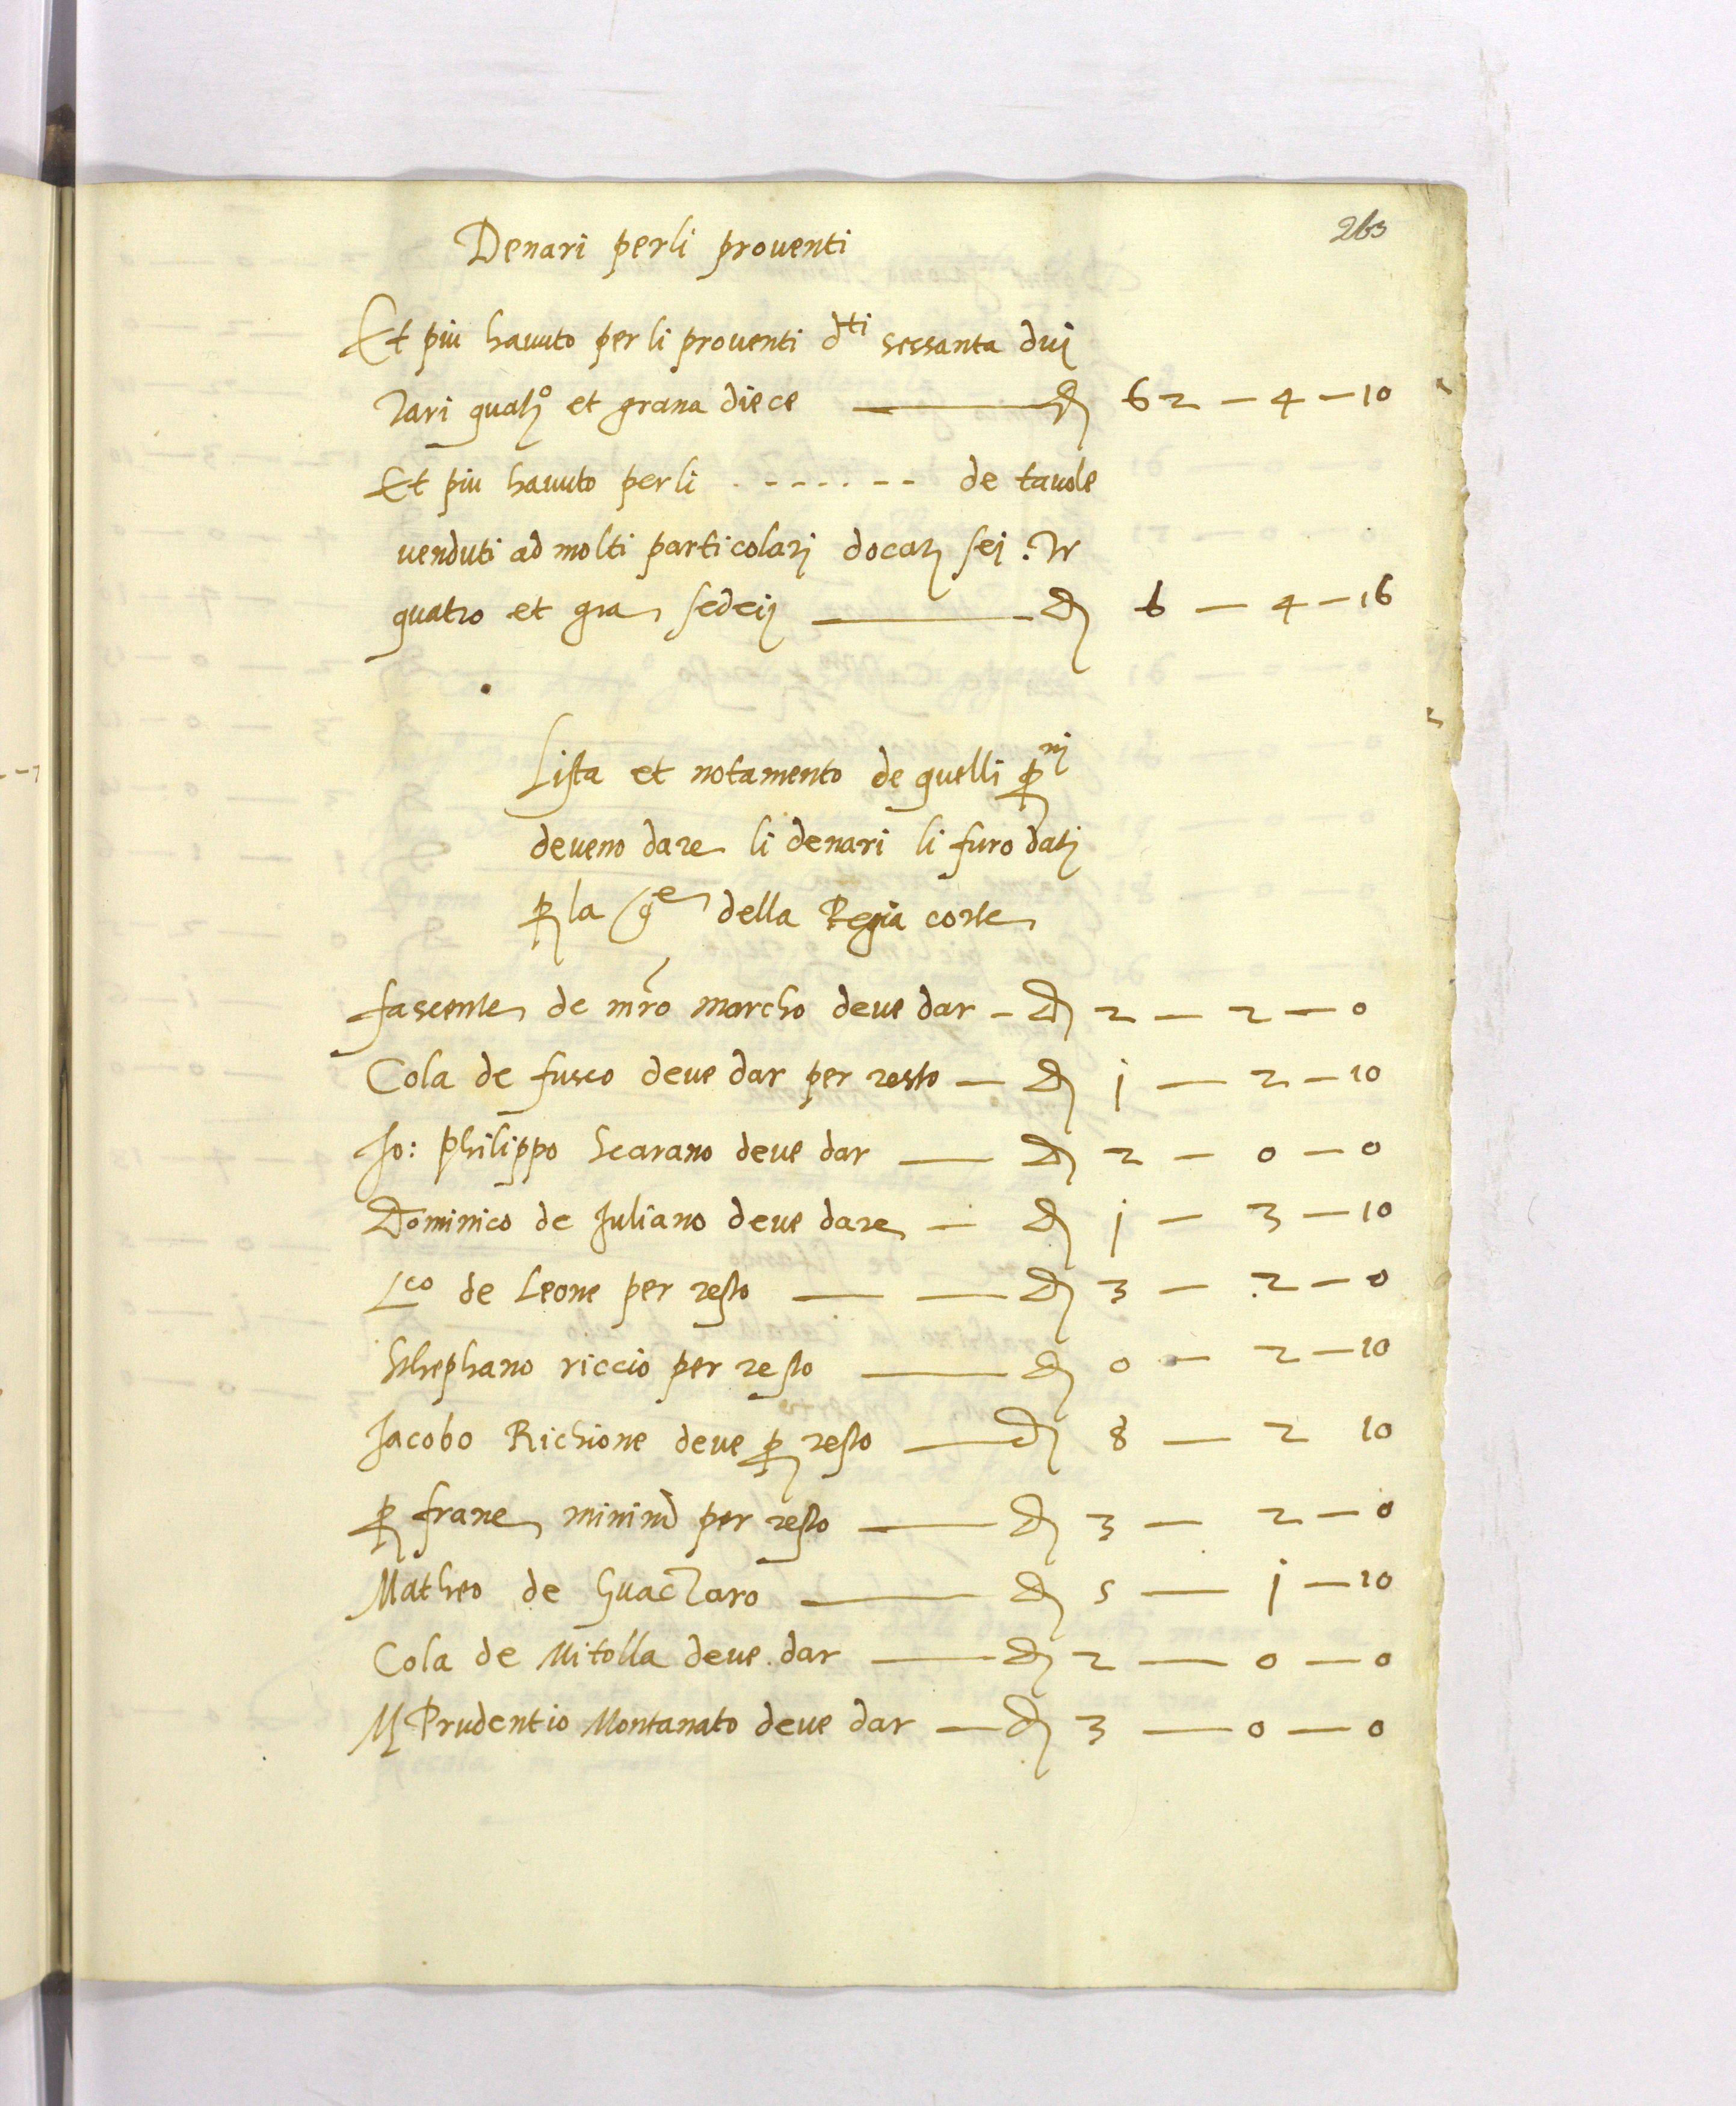 263
Denari perli proventi
Et piu havuto per li proventi d.ti sessanta dui
Tari quatro et grana diece — D 62 — 4 — 10
Et piu havuto perli . - - - . - - de tavole
venduti ad molti particolarj docatj sej . Tr
quatro et gra sedeij — D 6 — 4 — 16
Lista et notamento de quelli
deveno dare li denari li furo datj
p la della Regia corte
fascente de mro marcho deve dar — D 2 — 2 — 0
Cola de fusco deve dar per resto — D j — 2 — 10
Jo: Philippo Scarano deve dar — D 2 — 0 — 0
Dominico de Juliano deve dare — D j — 3 — 10
L.co de Leone per resto — D 3 — 2 — 0
Sthephano riccio per resto — D 0 — 2 — 10
Jacobo Richione deve p resto — D 8 — 2 10
p per resto — D 3 — 2 — 0
Matheo de — D 5 — j — 10
Cola de Mitolla deve dar — D 2 — 0 — 0
M Prudentio Montanato deve dar — D 3 — 0 — 0